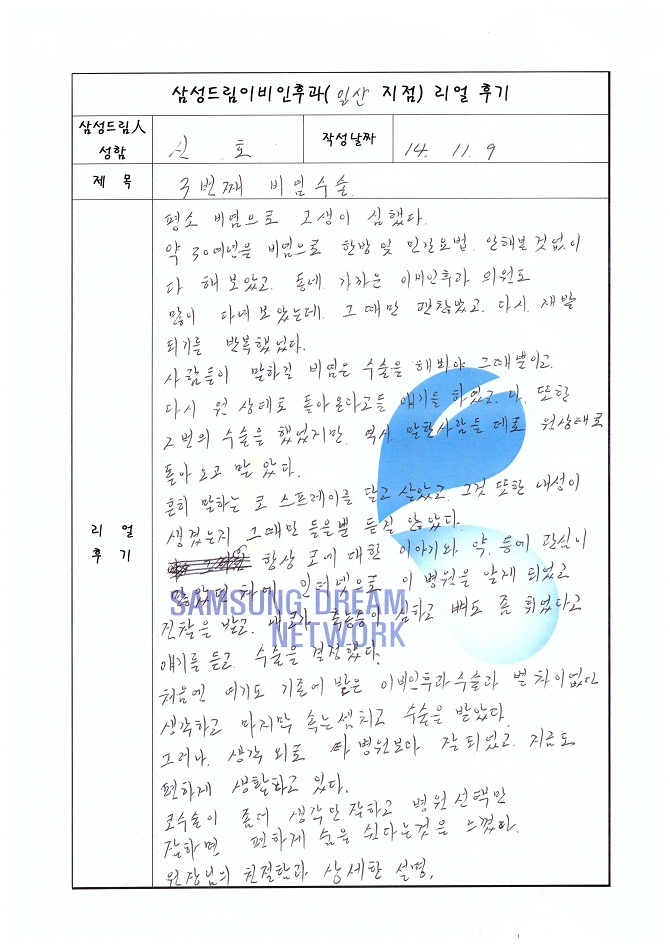 삼성드림이비인후과( 일산 지점) 리얼 후기
삼성드림人 성함
신 호
작성날짜
14. 11. 9
제 목
3번째 비염수술.
리 얼
후 기
평소 비염으로 고생이 심했다.
약 30여년을 비염으로 한방 및 민간요법. 안해본 것 없이
다 해 보았고. 동네. 가까운 이비인후과 의원도
많이 다녀 보았는데. 그때만 괜찮았고. 다시. 재발
되기를 반복했었다.
사람들이 말하길 비염은 수술을 해봐야 그때뿐이고.
다시 원 상태로 돌아온다고들 얘기를 하였고. 나. 또한
2번의 수술을 했었지만. 역시. 말한사람들 데로 원상태로
돌아 오고 말 았다.
흔히 말하는 코 스프레이를 달고 살았고. 그것 또한 내성이
생겼는지 그때만 들을뿐 듣질 않았다.
항상 코에 대한 이야기와 약. 등에 관심이
많았던 차에 인터넷으로 이 병원을 알게 되었고
진찰을 받고. 축농증이 심하고 뼈도 좀 휘었다고
얘기를 듣고. 수술을 결정했다.
처음엔 여기도 기존에 받은 이비인후과수술과 별 차이없다
생각하고 마지막 속는셈치고 수술을 받았다.
그러나. 생각 외로 타 병원보다 잘 되었고. 지금도
편하게 생활하고 있다.
코수술이 좀더 생각만 잘하고 병원선택만
잘하면 편하게 숨을 쉰다는것을 느꼈다.
원장님의 친절함과 상세한 설명.
SAMSUNG DREAM
NETWORK